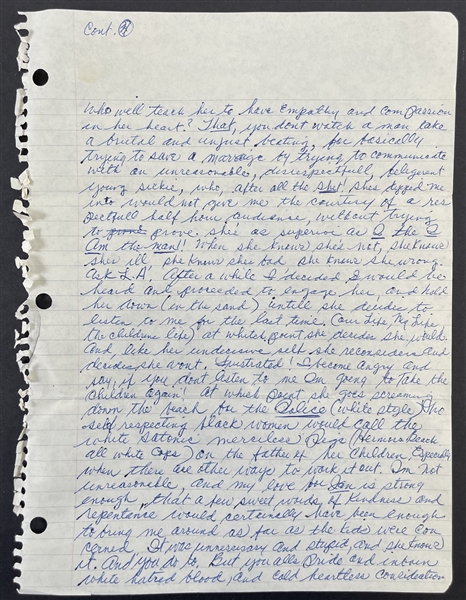 Cont. 4
Who well teach her to have Empathy and compassion
in her heart? That, you dont watch a man take
a brutal and unjust beating, for basically
trying to save a marage by trying to communicate
with an unreasonable, disrespectfull, beligerent
young suckie, who, after all the shit! she dipped me
into would not give me the courtesy of a res
pectfull half hour audience, without trying
to prove. she's as superior as I the I
Am the man! When she knows she's not, she knows
she's ill she knows she bad she knows she wrong.
Ask L.A'. After a while I decided I would be
heard and proceeded to engage her and hold
her down (in the sand) untill she decides to
listen to me for the last time, (our Life, My Life
the childrens life) at which point she decides she would.
And like her undecisive self she reconsiders and
decides she wont. Frustrated! I become angry and
say, if you dont listen to me Im going to take the
children again! At which point she goes screaming
down the beach for the Police (white style) Who
self respecting black women would call the
white satanic merciless Pigs (Hermosa Beach
all white Cops) on the father of her children Especially
when there are other ways to work it out. Im not
unreasonable, and my love for is strong
enough, that a few sweet words of kindness and
repentance would certainally have been enough
to bring me around as far as the kids were con
cerned. It was unnecessary and stupid, and she knows
it. And you do to. But you alls Pride and inborn
white hatred blood, and cold heartless consideration